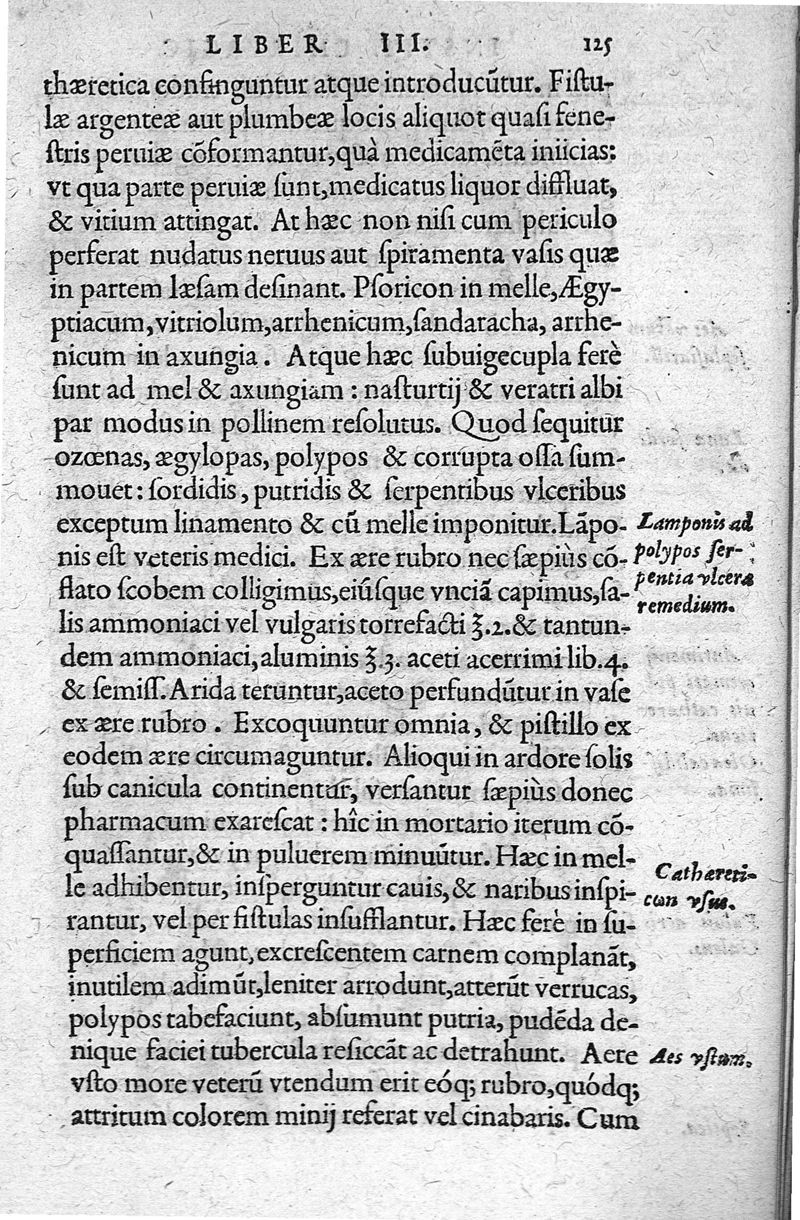 LIBER III. 125
thæretica confinguntur atque introducũtur. Fiſtu-
læ argenteæ aut plumbeæ locis aliquot quaſi fene-
ſtris peruiæ cõformantur, quà medicamẽta iniicias:
vt qua parte peruiæ ſunt, medicatus liquor diffluat,
& vitium attingat. At hæc non niſi cum periculo
perferat nudatus neruus aut ſpiramenta vaſis quæ
in partem læſam deſinant. Pſoricon in melle, Ægy-
ptiacum, vitriolum, arrhenicum, ſandaracha, arrhe-
nicum in axungia. Atque hæc ſubuigecupla ferè
ſunt ad mel & axungiam: naſturtij & veratri albi
par modus in pollinem reſolutus. Quod ſequitur
ozœnas, ægylopas, polypos & corrupta oſſa ſum-
mouet: ſordidis, putridis & ſerpentibus vlceribus
exceptum linamento & cũ melle imponitur. Lãpo-
nis eſt veteris medici. Ex ære rubro nec ſæpiùs cõ-
flato ſcobem colligimus, eiúſque vnciã capimus, ſa-
lis ammoniaci vel vulgaris torrefacti ʒ.2. & tantun-
dem ammoniaci, aluminis ʒ.3. aceti acerrimi lib.4.
& ſemiſſ. Arida teruntur, aceto perfundũtur in vaſe
ex ære rubro. Excoquuntur omnia, & piſtillo ex
eodem ære circumaguntur. Alioqui in ardore ſolis
ſub canicula continentur, verſantur ſæpiùs donec
pharmacum exareſcat: hîc in mortario iterum cõ-
quaſſantur, & in puluerem minuũtur. Hæc in mel-
le adhibentur, inſperguntur cauis, & naribus inſpi-
rantur, vel per fiſtulas inſufflantur. Hæc ferè in ſu-
perficiem agunt, excreſcentem carnem complanãt,
inutilem adimũt, leniter arrodunt, atterũt verrucas,
polypos tabefaciunt, abſumunt putria, pudẽda de-
nique faciei tubercula reſiccãt ac detrahunt. Aere
vſto more veterũ vtendum erit eóq; rubro, quódq;
attritum colorem minij referat vel cinabaris. Cum
Lamponis ad
polypos ſer-
pentia vlcera
remedium.
Cathæreti-
cωn vſus.
Aes vſtum.